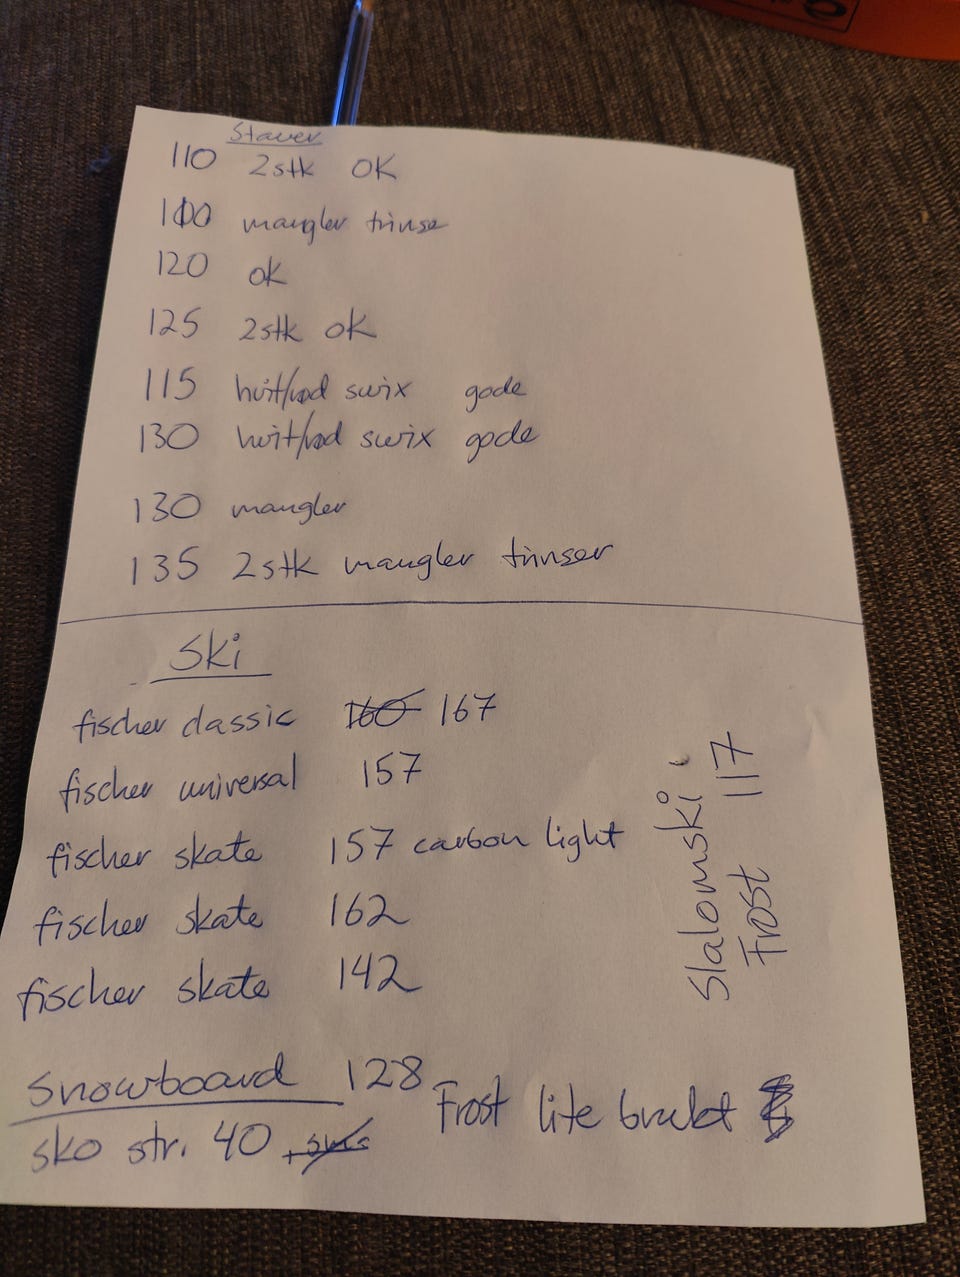 Staver
110 2stk OK
100 mangler trinse
120 ok
125 2stk OK
115 hvit/rød swix gode
130 hvit/rød swix gode
130 mangler
135 2stk mangler trinser
Ski
fischer classic 160 167
fischer universal 157
fischer skate 157 carbon light
fischer skate 162
fischer skate 142
Slalomski
Frost 117
Snowboard 128
Frost lite brukt
sko str. 40